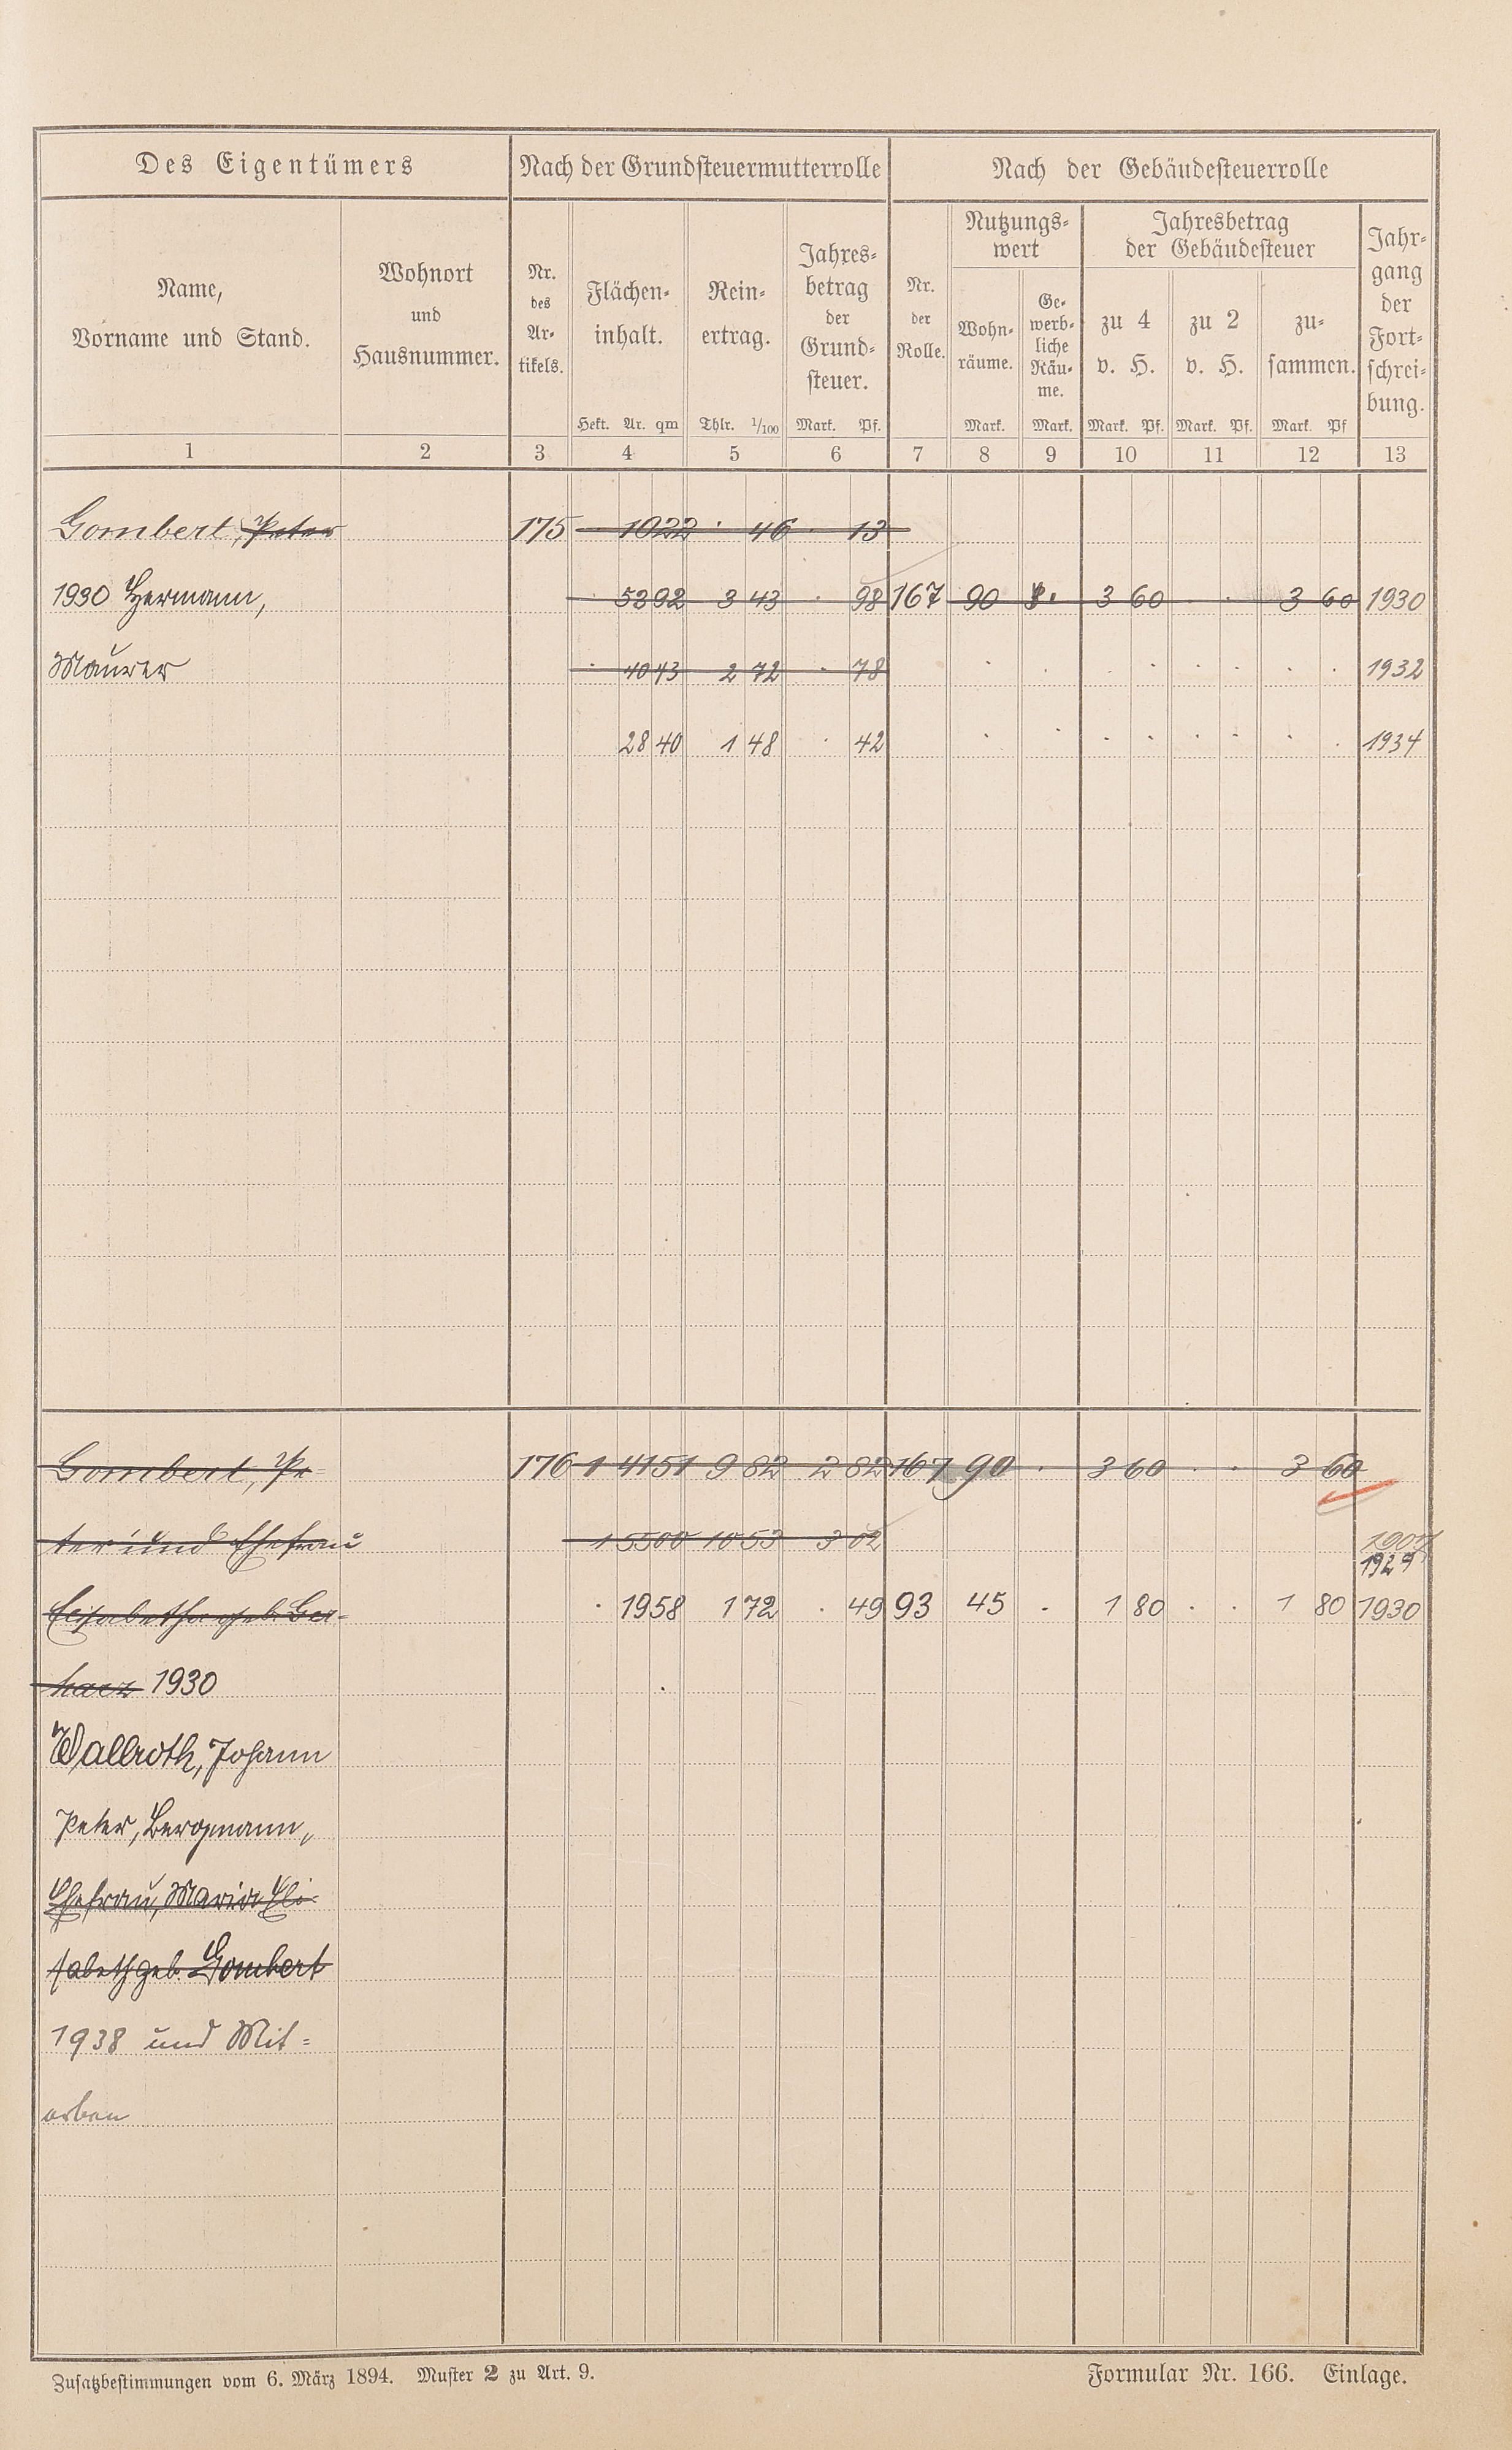 Des Eigentümers Nach der Grundsteuermutterrolle Nach der Gebäudesteuerrolle
Name,
Vorname und Stand.
Wohnort
und
Hausnummer.
Nr.
des
Ar-
tikels.
Flächen-
inhalt.
Hekt. Ar. qm
Rein-
ertrag.
Thlr. 1/100
Jahres-
betrag
der
Grund-
steuer.
Mark. Pf.
Nr.
der
Rolle.
Nutzungs-
wert
Wohn-
räume.
Mark.
Ge-
werb-
liche
Räu-
me.
Mark.
Jahresbetrag
der Gebäudesteuer
zu 4
v. H.
Mark. Pf.
zu 2
v. H.
Mark. Pf.
zu-
sammen.
Mark. Pf
Jahr-
gang
der
Fort-
schrei-
bung.
1 2 3 4 5 6 7 8 9 10 11 12 13
Gombert, Peter 175 10 22 · 46 · 13
1930 Hermann, · 53 92 3 43 · 98 167 90 · 3 60 · · 3 60 1930
Maurer · 40 43 2 72 · 78 · · · · · · · · 1932
28 40 1 48 · 42 · · · · · · · · 1934
Gombert, Pe- 176 1 41 51 9 82 2 82 167 90 · 3 60 · · 3 60
ter und Ehefrau 1 55 00 10 53 3 02 1907
1929
Elisabetha geb. Ger- · 19 58 1 72 · 49 93 45 · 1 80 · · 1 80 1930
harz 1930
Wallroth, Johann
Peter, Bergmann,
Ehefrau, Maria Eli-
sabeth geb. Gombert
1938 und Mit-
erben
Zusatzbestimmungen vom 6. März 1894. Muster 2 zu Art. 9. Formular Nr. 166. Einlage.